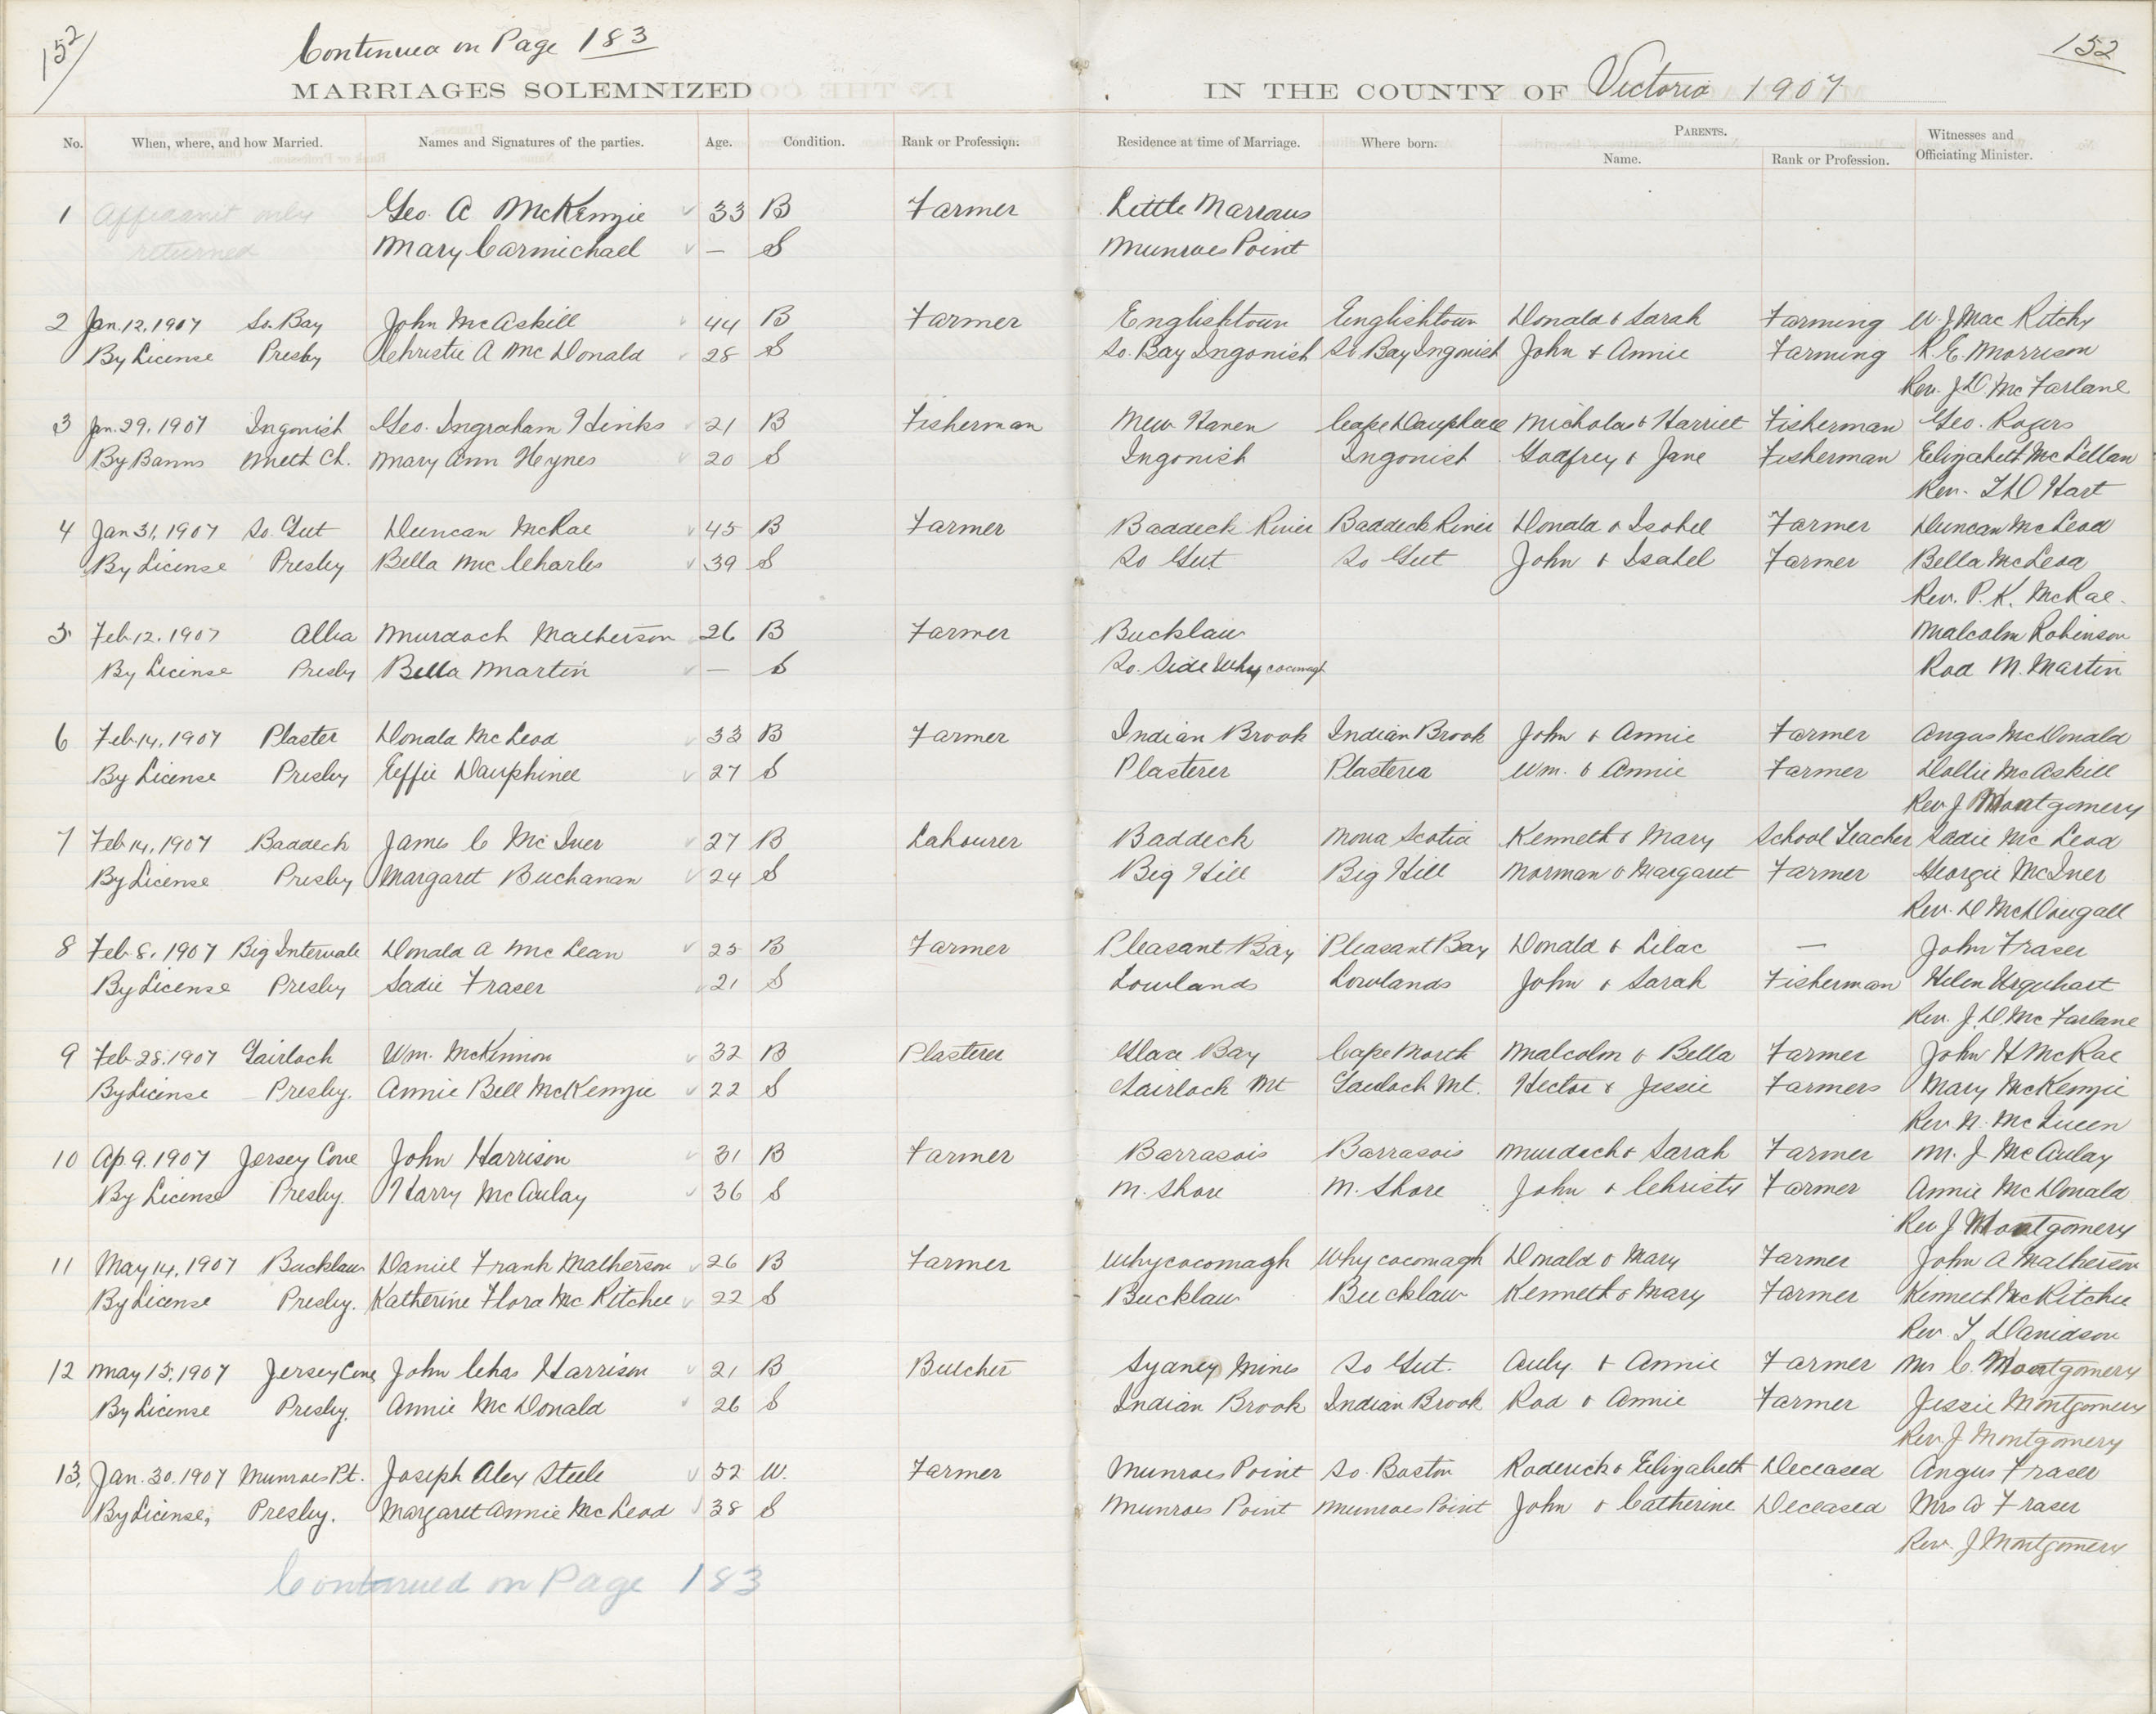 152
Continued on Page 183
152
MARRIAGES SOLEMNIZED IN THE COUNTY OF Victoria 1907
No. When, where, and how Married. Names and Signatures of the parties. Age. Condition. Rank or Profession. Residence at time of Marriage. Where born. PARENTS. Name. Rank or Profession. Witnesses and Officiating Minister.
1 Affidavit only Geo. A McKenzie 33 B Farmer Little Narrows
returned Mary Carmichael — S Munroes Point
2 Jan. 12, 1907 So. Bay John McAskill 44 B Farmer Englishtown Englishtown Donald & Sarah Farming W. J. MacRitchy
By License Presby Christie A McDonald 28 S So. Bay Ingonish So Bay Ingonish John & Annie Farming K. E. Morrison
Rev. J D. McFarlane
3 Jan. 29, 1907 Ingonish Geo. Ingraham Hinks 21 B Fisherman New Haven Cape Dauphine Nicholas & Harriet Fisherman Geo. Rogers
By Banns Meth Ch. Mary Ann Heynes 20 S Ingonish Ingonish Godfrey & Jane Fisherman Elizabeth McLellan
Rev. T D Hart
4 Jan 31, 1907 So. Gut Duncan McRae 45 B Farmer Baddeck River Baddeck River Donald & Isobel Farmer Duncan McLeod
By License Presby Bella McCharles 39 S So Gut So Gut John & Isabel Farmer Bella McLeod
Rev. P. K. McRae.
5 Feb. 12, 1907 Alba Murdoch Matheson 26 B Farmer Bucklaw Malcolm Robinson
By License Presby Bella Martin — S So. Side Whycocomagh Rod M. Martin
6 Feb 14, 1907 Plaster Donald McLeod 33 B Farmer Indian Brook Indian Brook John & Annie Farmer Angus McDonald
By License Presby Effie Dauphinee 27 S Plasterer Plasterer Wm. & Annie Farmer Dollie McAskill
Rev J Montgomery
7 Feb 14, 1907 Baddeck James C McIver 27 B Labourer Baddeck Nova Scotia Kenneth & Mary School Teacher Sadie McLeod
By License Presby Margaret Buchanan 24 S Big Hill Big Hill Norman & Margaret Farmer Georgie McIver
Rev. D McDougall
8 Feb 8, 1907 Big Intervale Donald A McLean 25 B Farmer Pleasant Bay Pleasant Bay Donald & Lilac — John Fraser
By License Presby Sadie Fraser 21 S Lowlands Lowlands John & Sarah Fisherman Helen Urquhart
Rev. J. D. McFarlane
9 Feb 28, 1907 Gairloch Wm. McKinnon 32 B Plasterer Glace Bay Cape North Malcolm & Bella Farmer John H McRae
By License Presby. Annie Bell McKenzie 22 S Gairloch Mt Gairloch Mt. Hector & Jessie Farmers Mary McKenzie
Rev. N. McQueen
10 Ap. 9, 1907 Jersey Cove John Harrison 31 B Farmer Barrasois Barrasois Murdoch & Sarah Farmer M. J McAulay
By License Presby. Harry McAulay 36 S N. Shore N. Shore John & Christy Farmer Annie McDonald
Rev J Montgomery
11 May 14, 1907 Bucklaw Daniel Frank Matheson 26 B Farmer Whycocomagh Whycocomagh Donald & Mary Farmer John A Matheson
By License Presby. Katherine Flora McRitchie 22 S Bucklaw Bucklaw Kenneth & Mary Farmer Kenneth McRitchie
Rev. T. Davidson
12 May 15, 1907 Jersey Cove John Chas Harrison 21 B Butcher Sydney Mines So Gut. Auly & Annie Farmer Mrs C. Montgomery
By License Presby. Annie McDonald 26 S Indian Brook Indian Brook Rod & Annie Farmer Jessie Montgomery
Rev. J Montgomery
13, Jan. 30, 1907 Munroes Pt. Joseph Alex Steele 52 W. Farmer Munroes Point So. Boston Roderick & Elizabeth Deceased Angus Fraser
By License, Presby. Margaret Annie McLeod 38 S Munroes Point Munroes Point John & Catherine Deceased Mrs A Fraser
Rev. J Montgomery
Continued on Page 183